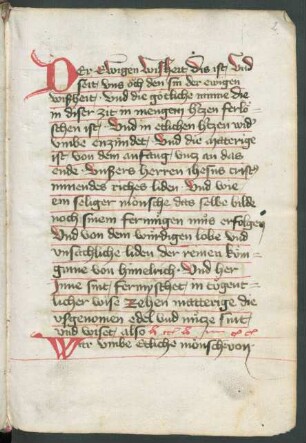 Der Ewigen wisheit dis ist und
seit uns och den sin der ewigen
wisheit · Und die götliche minne die
in diser zit in mengem hꝛzen ferlö-
schen ist · Und in etlichen hꝛzen wid'
umbe enzündet · Und die materige
ist von dem anfang untz an das
ende · Unsers herren ihesus cristi
minendes riches liden · Und wie
ein seliger mönsche das selbe bilde
noch sinem fermügen mus erfolgen
Und von dem wirdigen lobe und
unsachliche liden der reinen kün-
ginne von himelrich · Und her
Inne sint fermyschet in tögent-
licher wise Zehen matterige die
usgenomen edel und nütze sint
und wiset also
War umbe etliche mönschē von